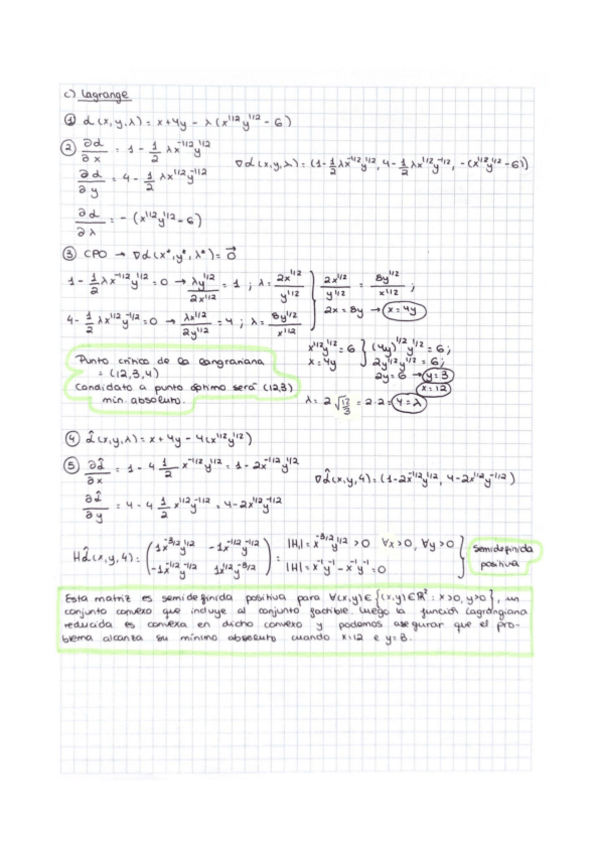 c) Lagrange
① L(x,y,λ) = x+4y - λ(x^1/2 y^1/2 - 6)
② ∂L/∂x = 1 - 1/2 λx^-1/2 y^1/2
∇L(x,y,λ) = (1 - 1/2 λx^-1/2 y^1/2, 4 - 1/2 λx^1/2 y^-1/2, -(x^1/2 y^1/2 - 6))
∂L/∂y = 4 - 1/2 λx^1/2 y^-1/2
∂L/∂λ = -(x^1/2 y^1/2 - 6)
③ CPO → ∇L(x*,y*,λ*) = 0⃗
1 - 1/2 λx^-1/2 y^1/2 = 0 → λy^1/2 / 2x^1/2 = 1 ; λ = 2x^1/2 / y^1/2
4 - 1/2 λx^1/2 y^-1/2 = 0 → λx^1/2 / 2y^1/2 = 4 ; λ = 8y^1/2 / x^1/2
2x^1/2 / y^1/2 = 8y^1/2 / x^1/2 ;
2x = 8y → x = 4y
Punto crítico de la langraniana
= (12,3,4)
Candidato a punto óptimo será (12,3)
min. absoluto.
x^1/2 y^1/2 = 6
x = 4y
(4y)^1/2 y^1/2 = 6;
2y^1/2 y^1/2 = 6;
2y = 6 → y = 3
x = 12
λ = 2 √12/3 = 2·2 = 4 = λ
④ L̂(x,y,λ) = x+4y - 4(x^1/2 y^1/2)
⑤ ∂L̂/∂x = 1 - 4 1/2 x^-1/2 y^1/2 = 1 - 2x^-1/2 y^1/2
∇L̂(x,y,4) = (1 - 2x^-1/2 y^1/2, 4 - 2x^1/2 y^-1/2)
∂L̂/∂y = 4 - 4 1/2 x^1/2 y^-1/2 = 4 - 2x^1/2 y^-1/2
HL̂(x,y,4) = (1x^-3/2 y^1/2 -1x^-1/2 y^-1/2
-1x^-1/2 y^-1/2 1x^1/2 y^-3/2) :
|H₁| = x^-3/2 y^1/2 > 0 ∀x>0, ∀y>0
|H| = x^-1 y^-1 - x^-1 y^-1 = 0
Semidefinida
positiva
Esta matriz es semidefinida positiva para ∀(x,y)∈{(x,y)∈ℝ² : x>0, y>0}, un
conjunto convexo que incluye al conjunto factible. Luego la función Lagrangiana
reducida es convexa en dicho convexo y podemos asegurar que el pro-
blema alcanza su mínimo absoluto cuando x=12 e y=3.